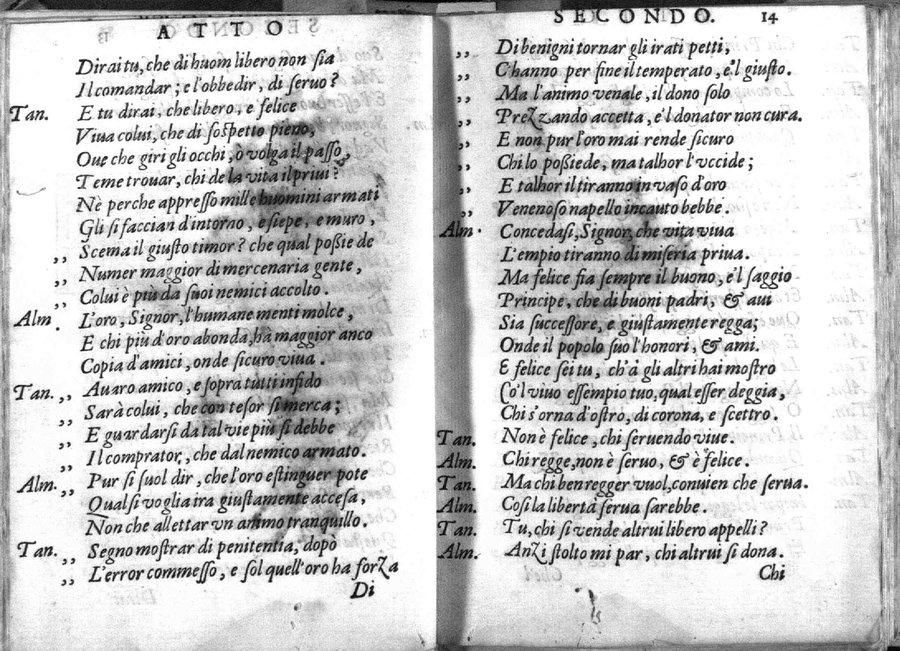 ATTO
Dirai tu, che di huom libero non sia
Il comandar; e l'obbedir, di seruo?
Tan. E tu dirai, che libero, e felice
Viua colui, che di sospetto pieno,
Oue che giri gli occhi, ò volga il passo,
Teme trouar, chi de la vita il priui?
Nè perche appresso mille huomini armati
Gli si faccian d'intorno, e siepe, e muro,
Scema il giusto timor? che qual possie de
,, Numer maggior di mercenaria gente,
,, Colui è più da suoi nemici accolto.
Alm. L'oro, Signor, l'humane menti molce,
E chi più d'oro abonda, hà maggior anco
Copia d'amici, onde sicuro viua.
Tan. ,, Auaro amico, e sopra tutti infido
,, Sarà colui, che con tesor si merca;
,, E guardarsi da tal vie più si debbe
,, Il comprator, che dal nemico armato.
Alm. ,, Pur si suol dir, che l'oro estinguer pote
Qual si voglia ira giustamente accesa,
Non che allettar vn animo tranquillo.
Tan. ,, Segno mostrar di penitentia, dopò
,, L'error commesso, e sol quell'oro ha forza
Di
SECONDO. 14
,, Di benigni tornar gli irati petti,
,, C'hanno per fine il temperato, e'l giusto.
,, Ma l'animo venale, il dono solo
,, Prezzando accetta, e'l donator non cura.
,, E non pur l'oro mai rende sicuro
,, Chi lo possiede, ma talhor l'vccide;
,, E talhor il tiranno in vaso d'oro
,, Venenoso napello incauto bebbe.
Alm. Concedasi, Signor, che vita viua
L'empio tiranno di miseria priua.
Ma felice fia sempre il buono, e'l saggio
Principe, che di buoni padri, & aui
Sia successore, e giustamente regga;
Onde il popolo suo l'honori, & ami.
E felice sei tu, ch'à gli altri hai mostro
Co'l viuo essempio tuo, qual esser deggia,
Chi s'orna d'ostro, di corona, e scettro.
Tan. Non è felice, chi seruendo viue.
Alm. Chi regge, non è seruo, & è felice.
Tan. Ma chi ben regger vuol, conuien che serua.
Alm. Cosi la libertà serua sarebbe.
Tan. Tu, chi si vende altrui libero appelli?
Alm. Anzi stolto mi par, chi altrui si dona.
Chi